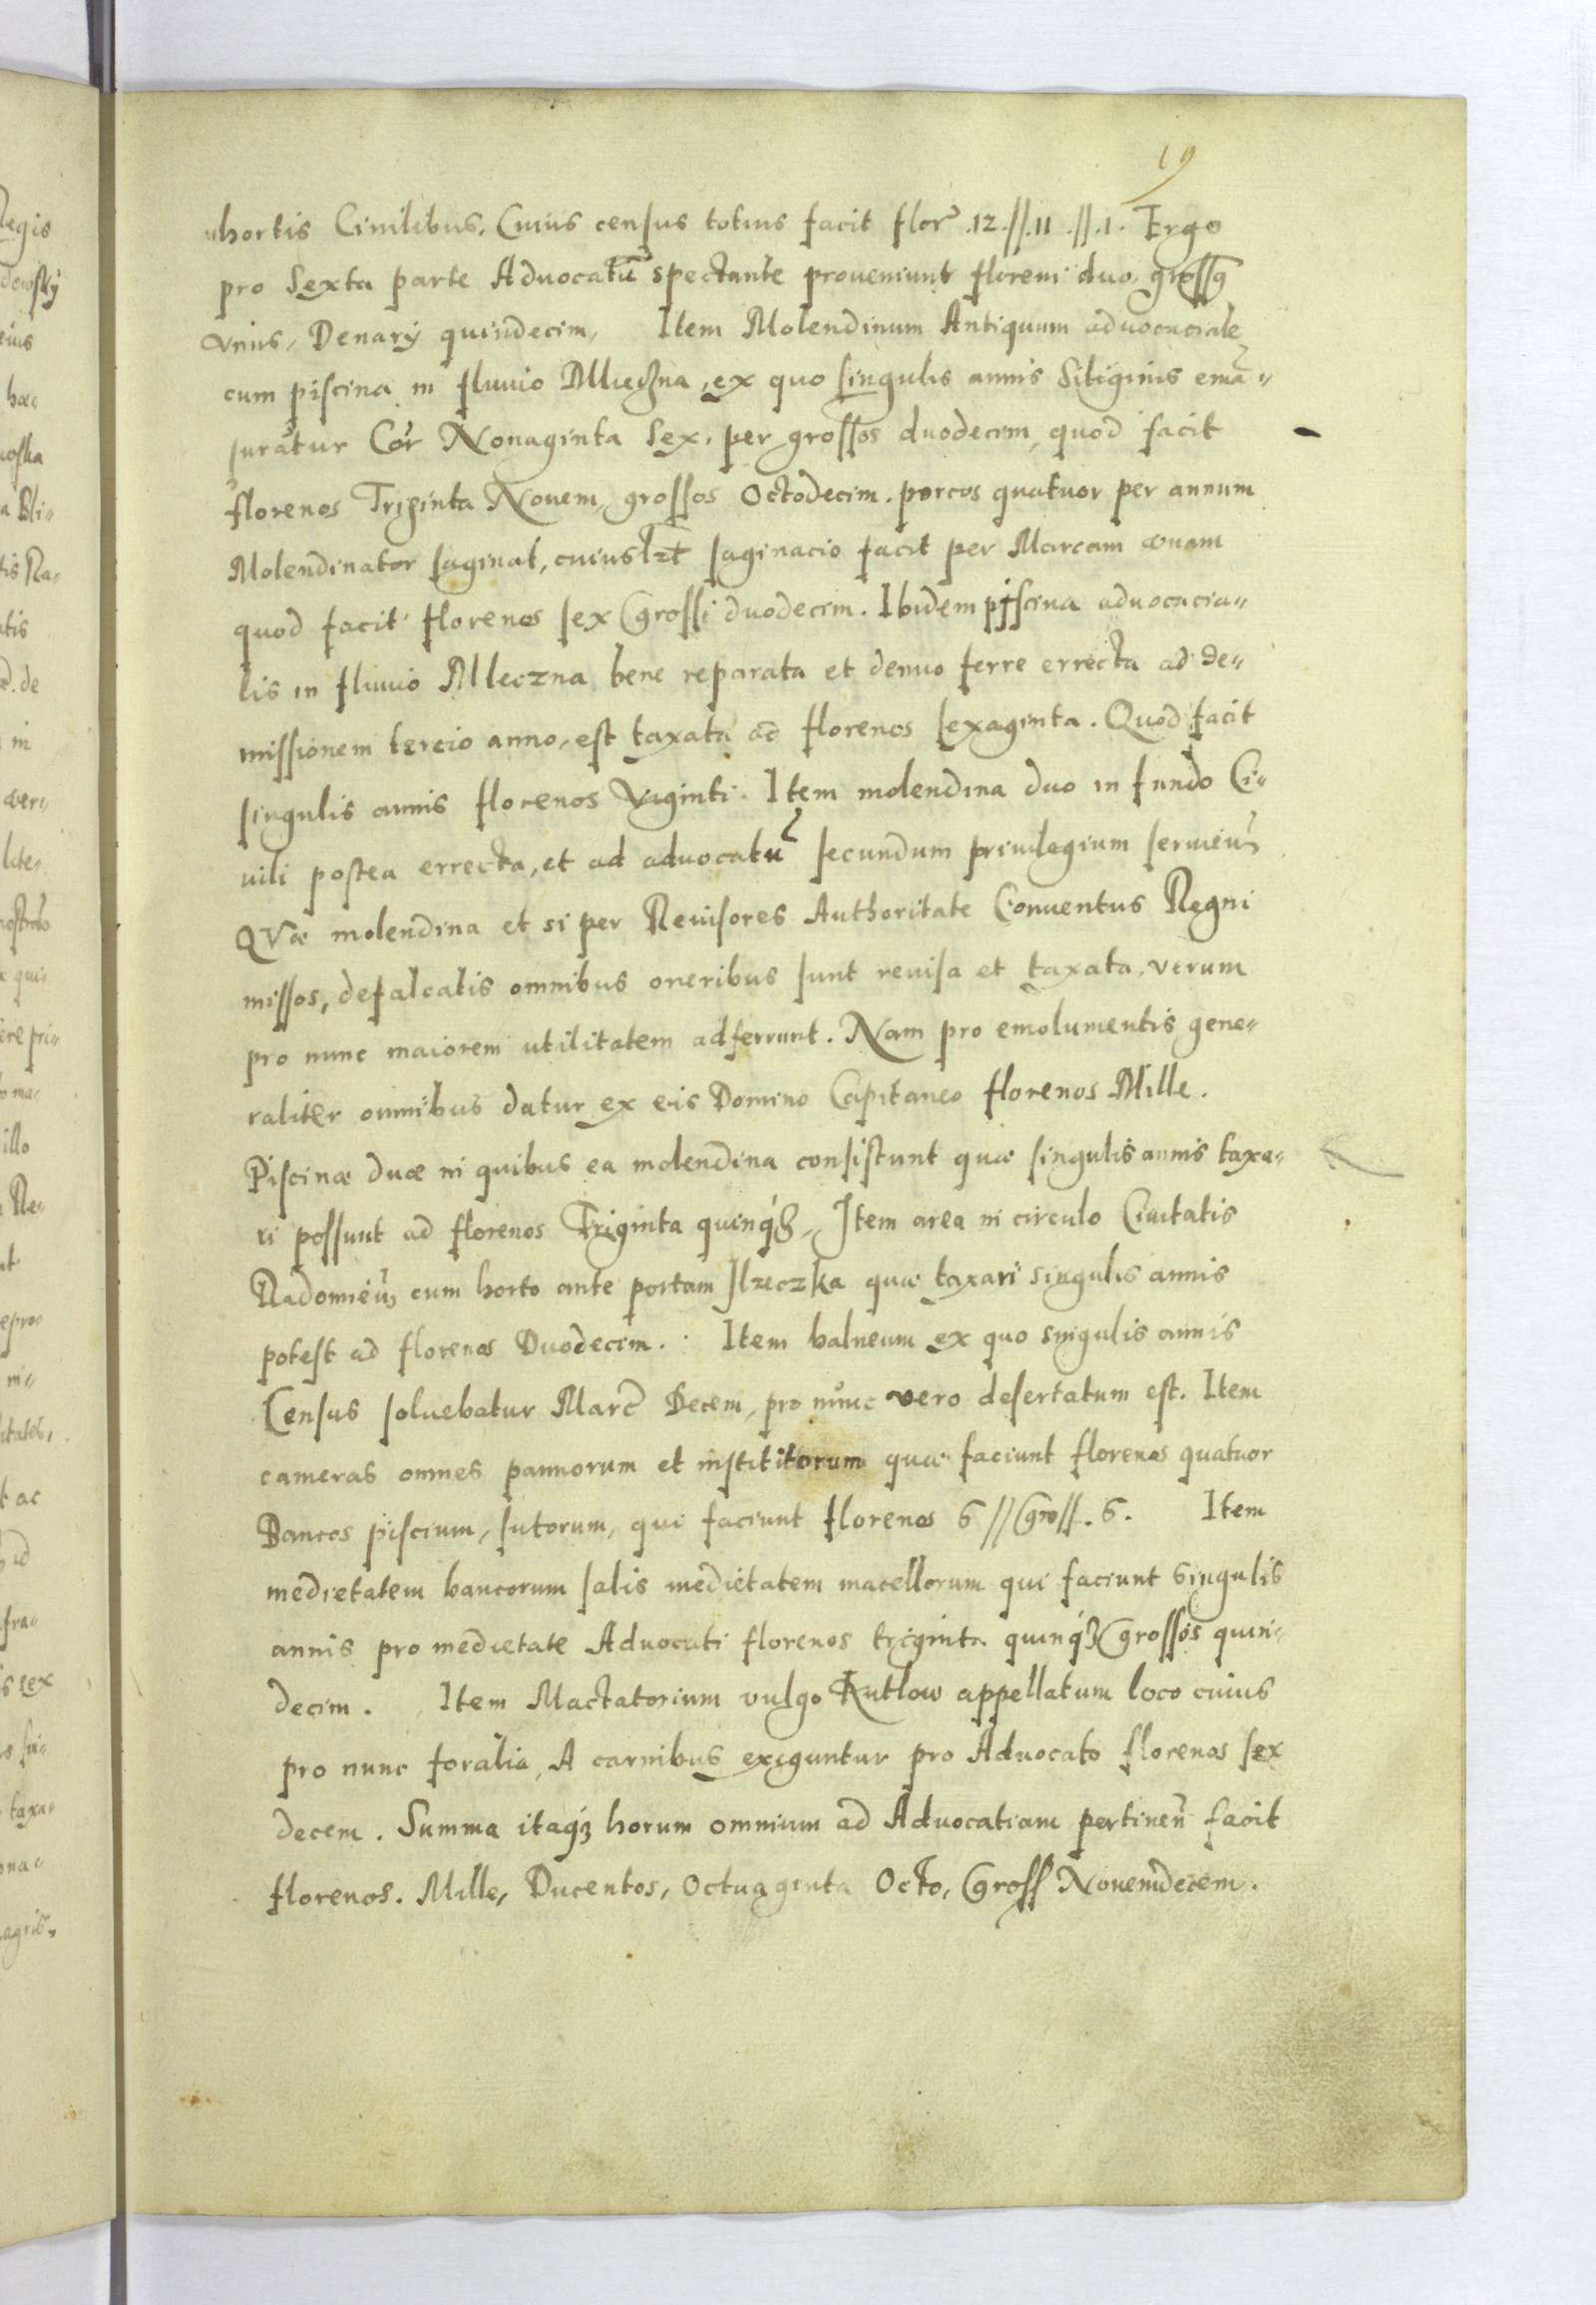 19
hortis Ciuilibus. Cuius census totius facit flor .12.//.11.//.1. Ergo
pro Sexta parte Aduocatū spectante proueniunt floreni duo, gross9
vnius, Denarÿ quindecim, Item Molendinum Antiquum aduocaciale
cum piscina in fluuio Mleczna, ex quo singulis annis Siliginis emā-
suratur Cor Nonaginta Sex, per grossos duodecim, quod facit
florenos Triginta Nouem, grossos Octodecim. porcos quatuor per annum
Molendinator saginat, cuius lzt saginacio facit per Marcam vnam
quod facit florenos sex Grossi duodecim. Ibidem piscina aduocacia-
lis in fluuio Mleczna bene reparata et denuo ferre errecta ad de-
missionem tercio anno, est taxata ad florenos sexaginta. Quod facit
singulis annis florenos Viginti. Item molendina duo in fundo Ci-
uili postea errecta, et ad aduocatū secundum priuilegium seruieñ
QVæ molendina et si per Reuisores Authoritate Conuentus Regni
missos, defalcatis omnibus oneribus sunt reuisa et taxata, verum
pro nunc maiorem utilitatem adferrunt. Nam pro emolumentis gene-
raliter omnibus datur ex eis Domino Capitaneo florenos Mille.
Piscinæ duæ in quibus ea molendina consistunt quæ singulis annis taxa-
ri possunt ad florenos Triginta quinq3, Item area in circulo Ciuitatis
Radomieñ cum horto ante portam Ilzeczka quæ taxari singulis annis
potest ad florenos Duodecim. Item balneum ex quo singulis annis
Census soluebatur Marc Decem, pro nunc vero desertatum est. Item
cameras omnes pannorum et instititorum quæ faciunt florenos quatuor
Bancos piscium, sutorum, qui faciunt florenos 6 // Gross. 6. Item
medietatem bancorum salis medietatem macellorum qui faciunt singulis
annis pro medietate Aduocati florenos triginta quinq3 Grossos quin-
decim. Item Mactatorium vulgo Kutlow appellatum loco cuius
pro nunc foralia, A carnibus exiguntur pro Aduocato florenos sex
decem. Summa itaq3 horum omnium ad Aduocatiam pertineñ facit
florenos. Mille, Ducentos, Octuaginta Octo, Gross Nouemdecem.